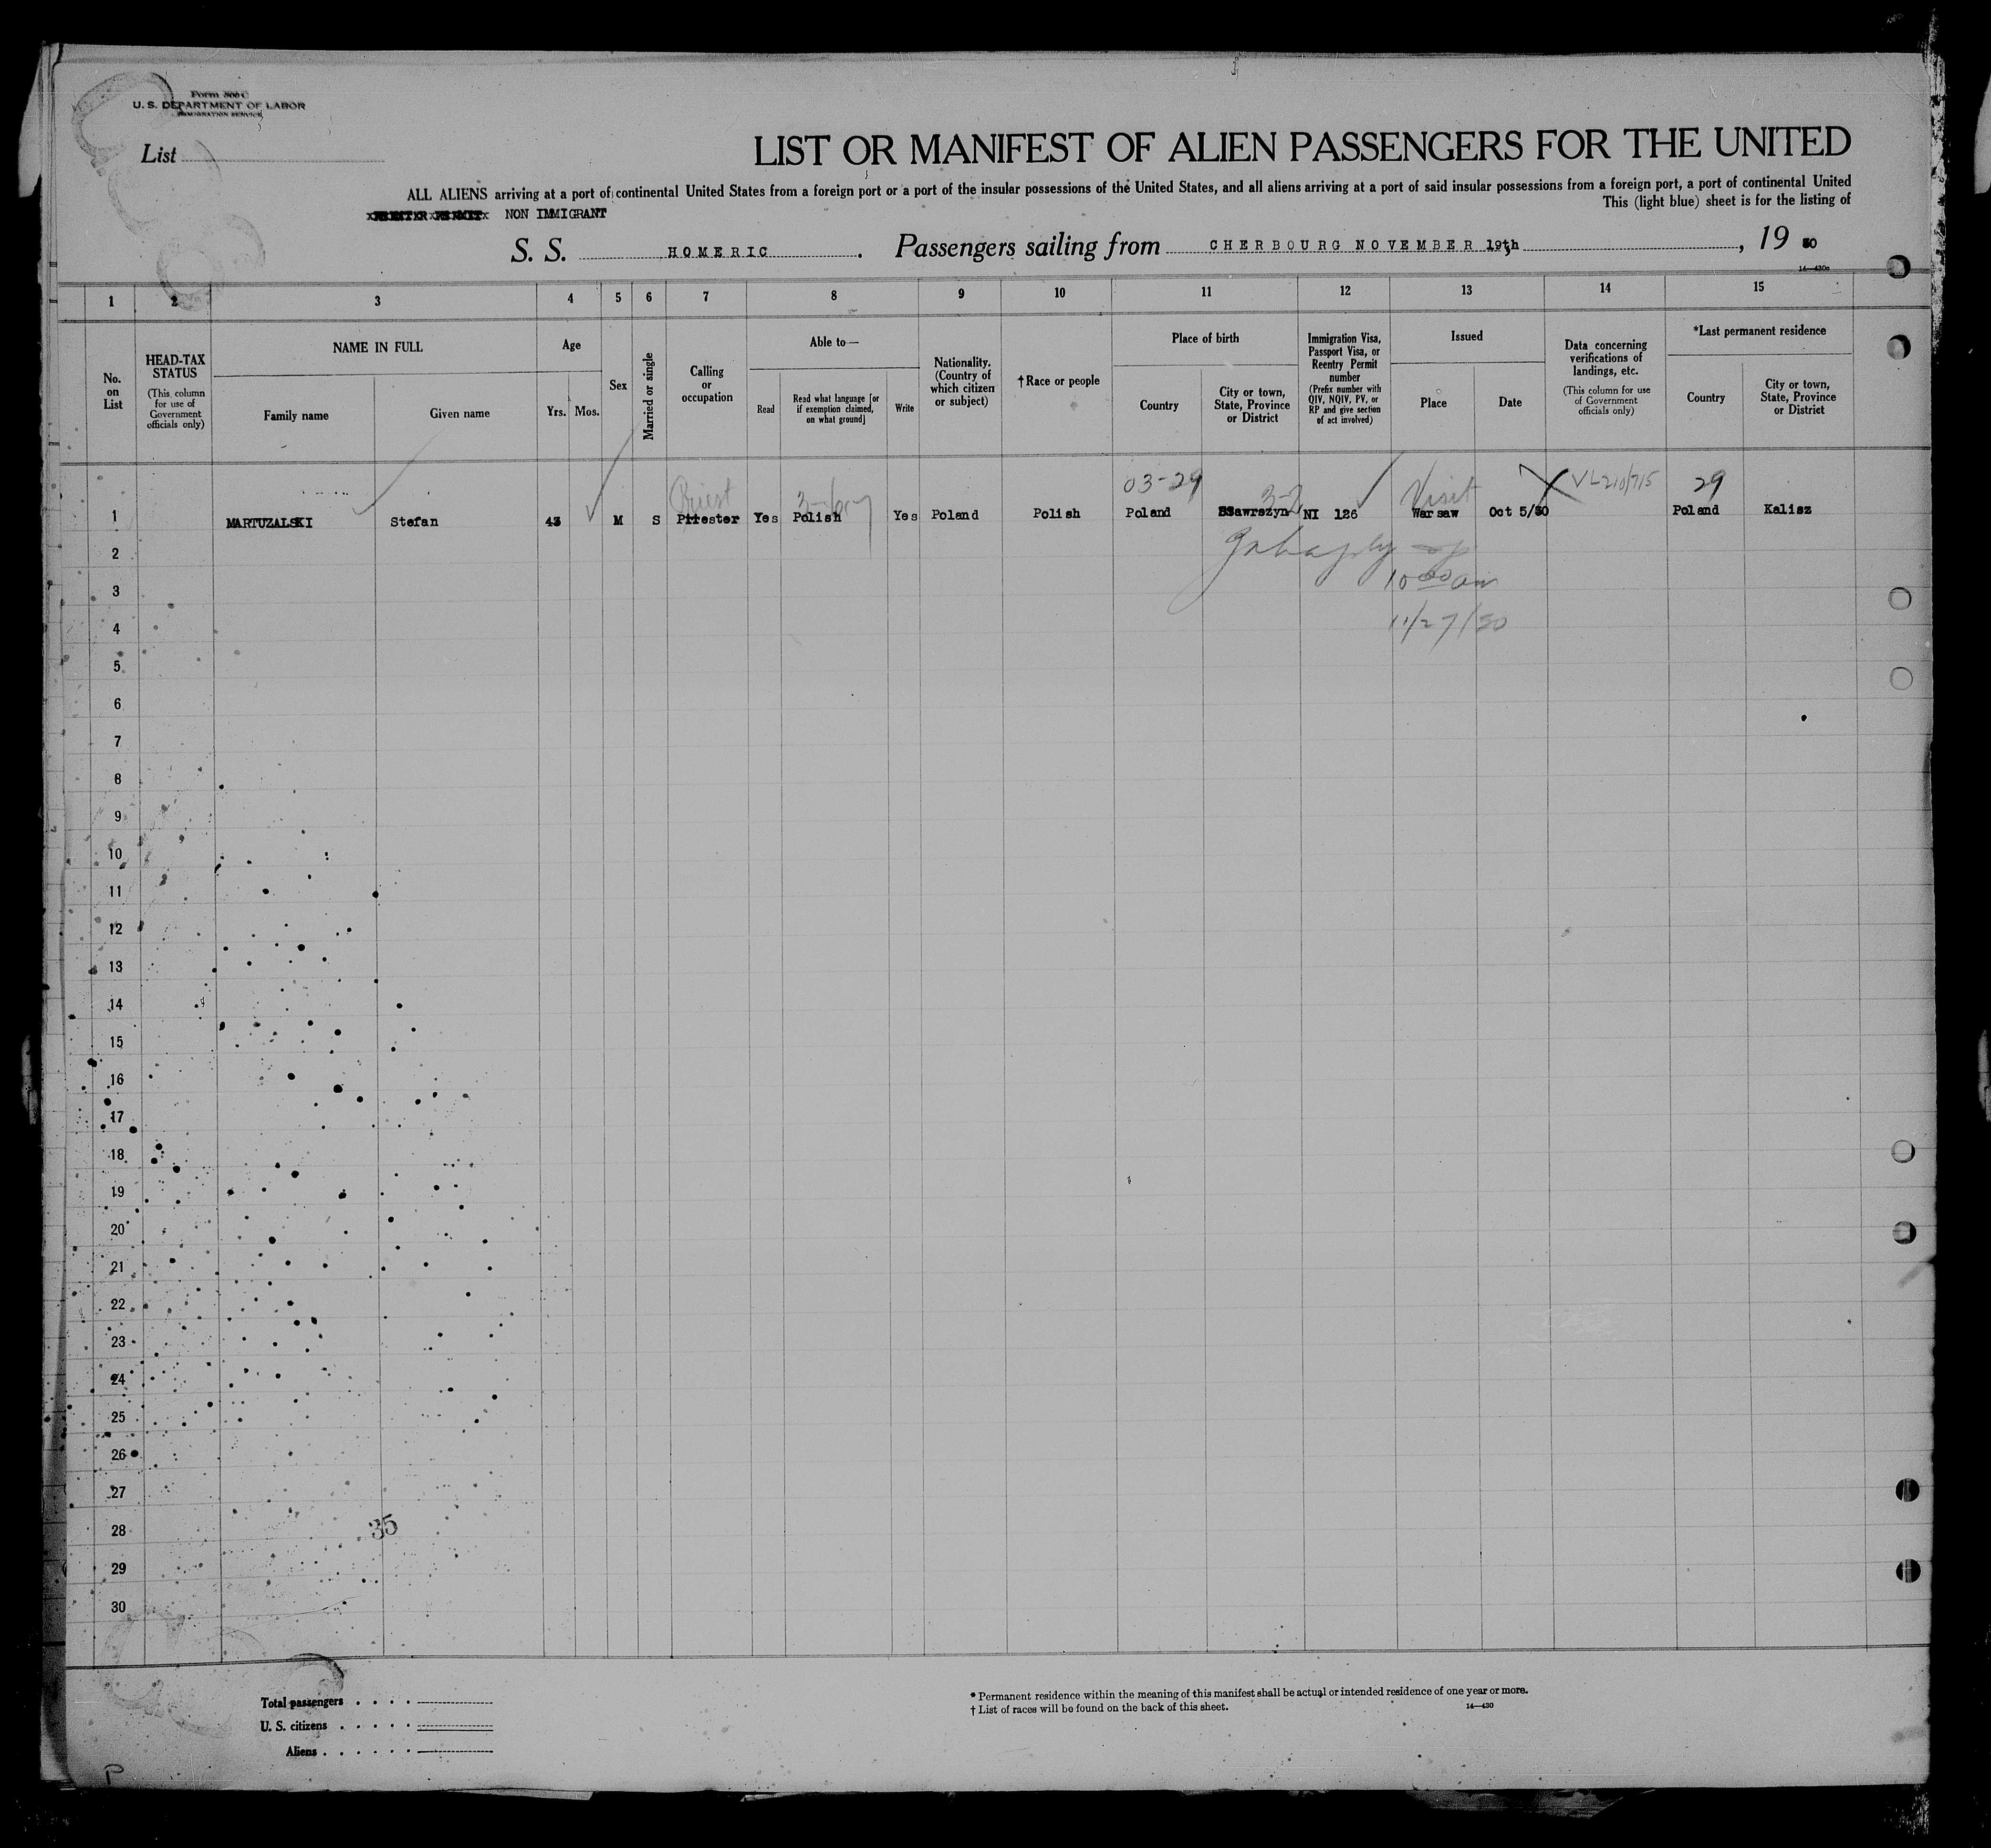 Form 500 C
U. S. DEPARTMENT OF LABOR
IMMIGRATION SERVICE
List
LIST OR MANIFEST OF ALIEN PASSENGERS FOR THE UNITED
ALL ALIENS arriving at a port of continental United States from a foreign port or a port of the insular possessions of the United States, and all aliens arriving at a port of said insular possessions from a foreign port, a port of continental United
This (light blue) sheet is for the listing of
NON IMMIGRANT
S. S. HOMERIC . Passengers sailing from CHERBOURG NOVEMBER 19th , 19 30
14—430c
1 2 3 4 5 6 7 8 9 10 11 12 13 14 15
No. on List
HEAD-TAX STATUS
(This column for use of Government officials only)
NAME IN FULL
Family name
Given name
Age
Yrs.
Mos.
Sex
Married or single
Calling or occupation
Able to—
Read
Read what language [or if exemption claimed, on what ground]
Write
Nationality. (Country of which citizen or subject)
† Race or people
Place of birth
Country
City or town, State, Province or District
Immigration Visa, Passport Visa, or Reentry Permit number
(Prefix number with QIV, NQIV, PV, or RP and give section of act involved)
Issued
Place
Date
Data concerning verifications of landings, etc.
(This column for use of Government officials only)
*Last permanent residence
Country
City or town, State, Province or District
Priest 03-29 Visit 29
1 MARTUZALSKI Stefan 43 M S Yes Polish Yes Poland Polish Poland NI 126 Warsaw Oct 5/30 Poland Kalisz
2
10 00 am
3
11/27/30
4
5
6
7
8
9
10
11
12
13
14
15
16
17
18
19
20
21
22
23
24
25
26
27
35
28
29
30
Total passengers . . . .
U. S. citizens . . . . .
Aliens . . . . . .
* Permanent residence within the meaning of this manifest shall be actual or intended residence of one year or more.
† List of races will be found on the back of this sheet.
14—430
P